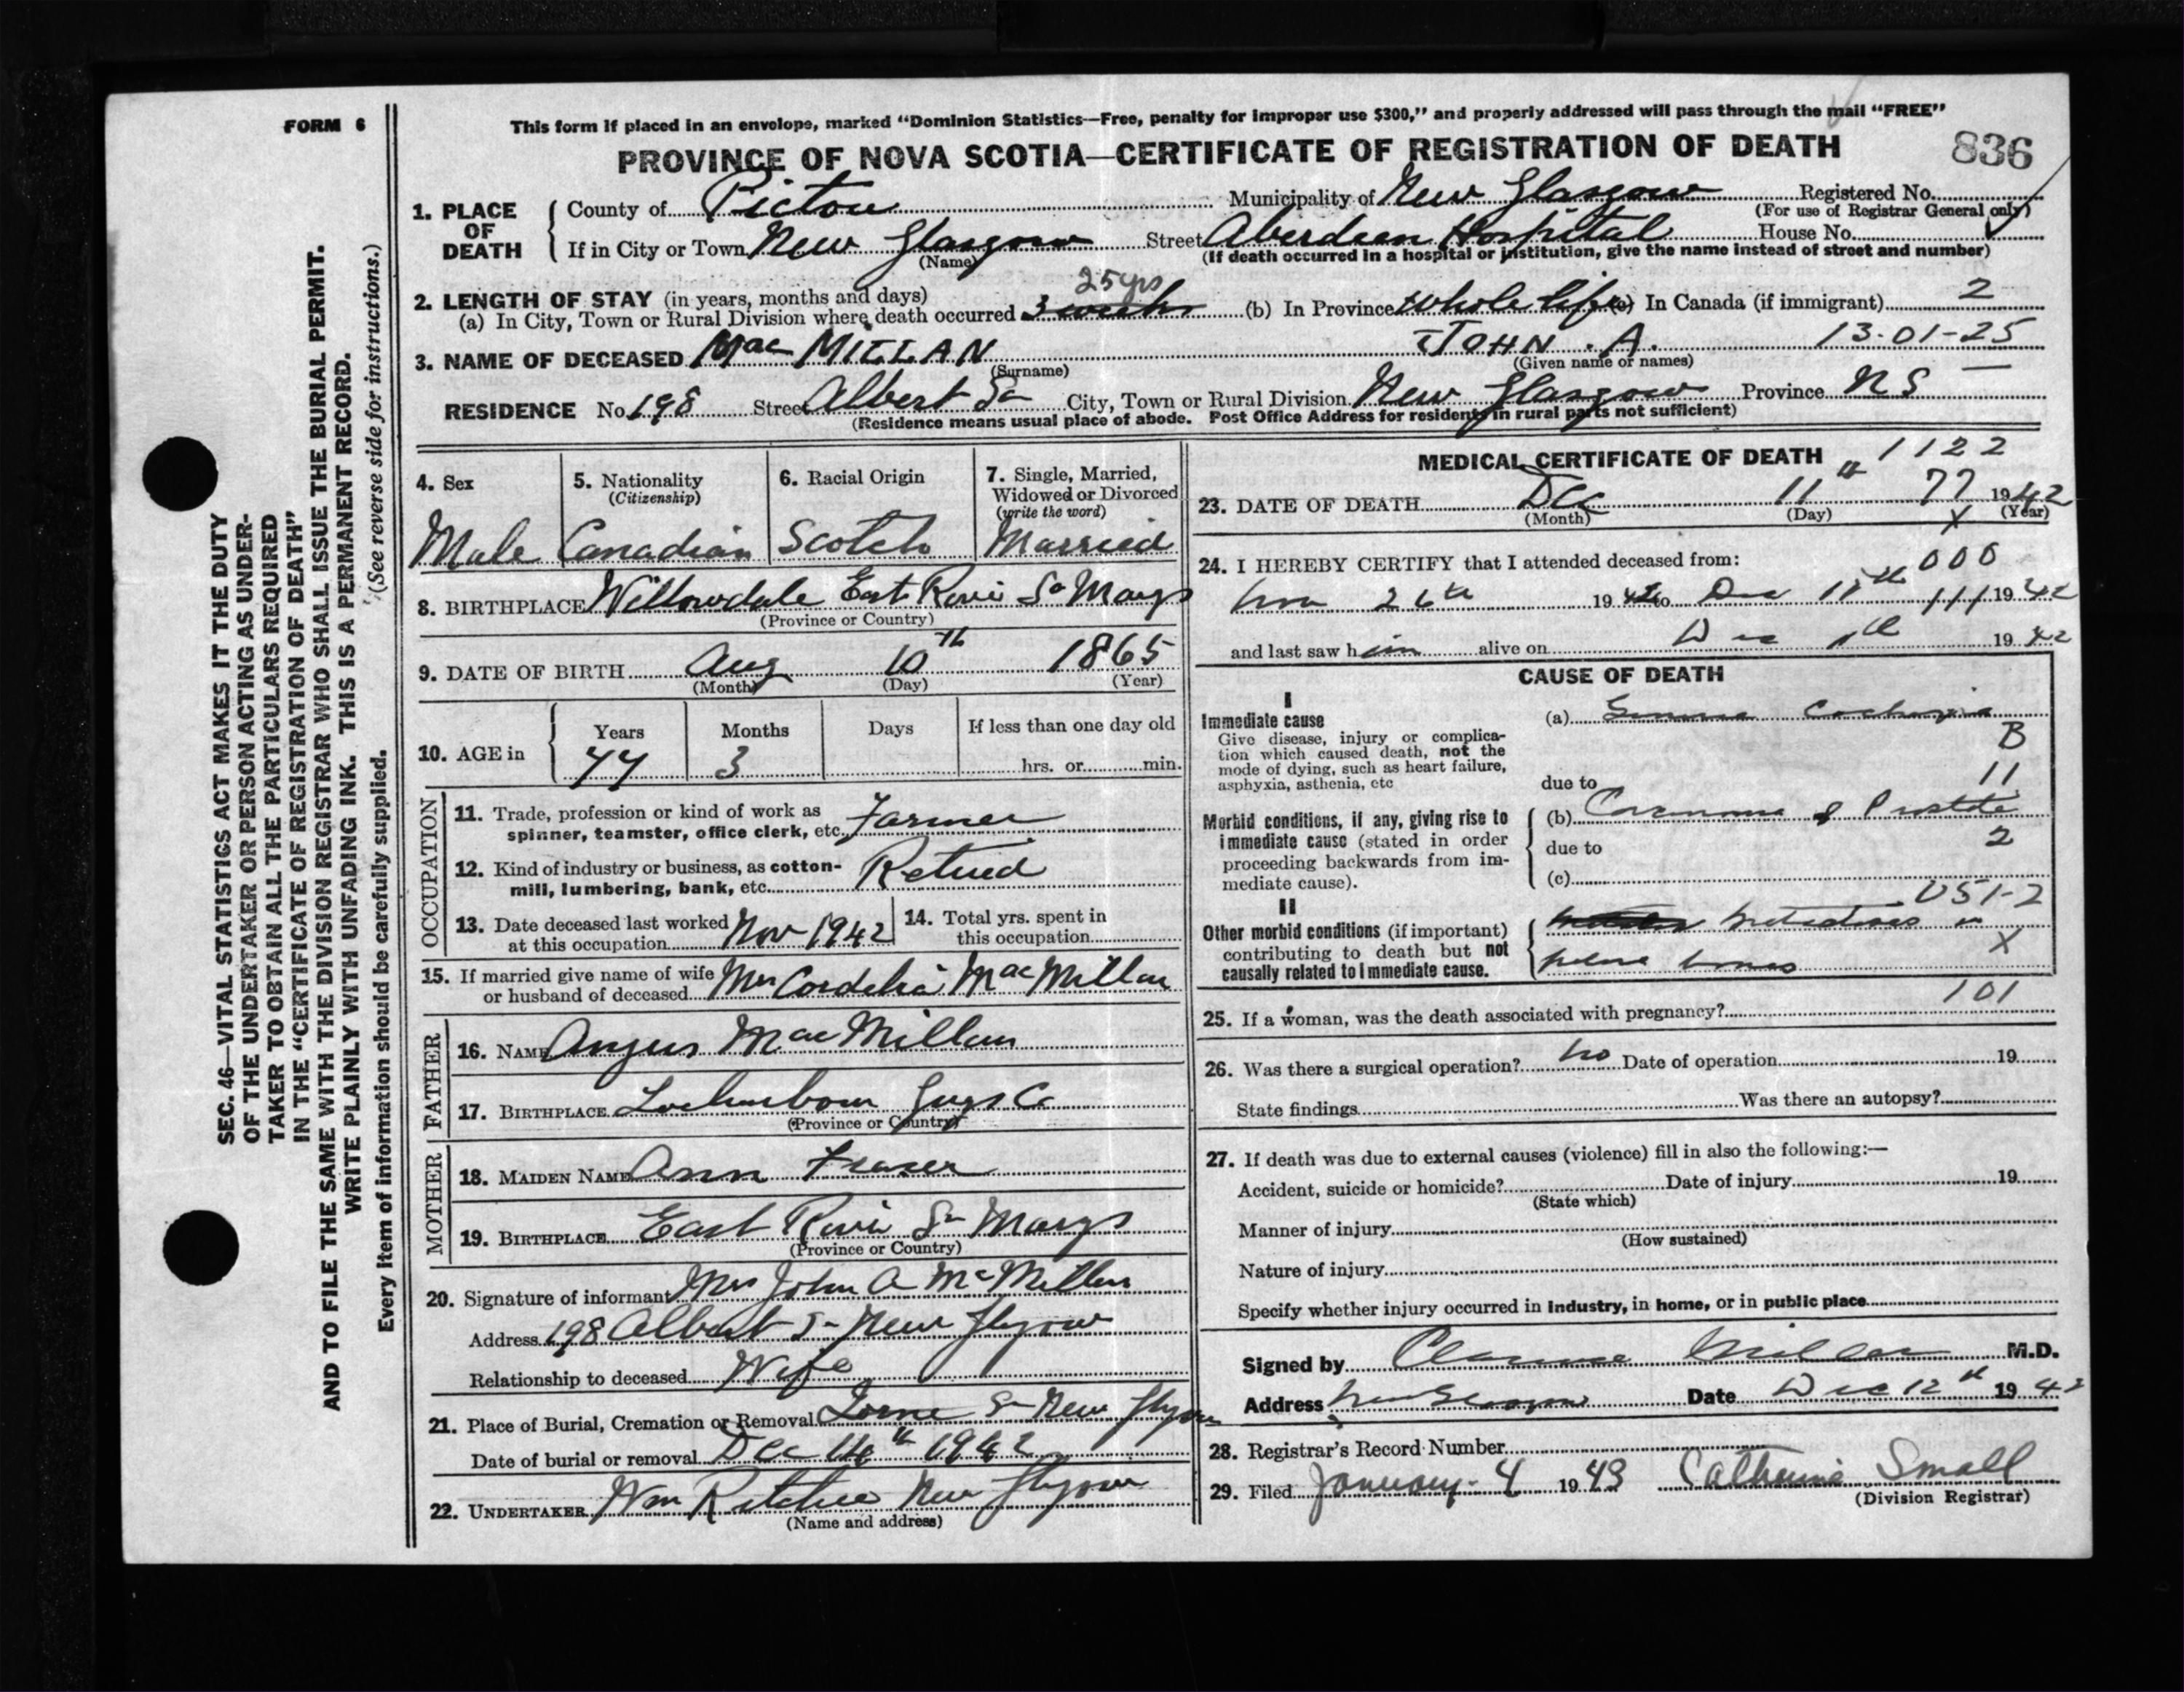 FORM 6
This form if placed in an envelope, marked “Dominion Statistics—Free, penalty for improper use $300,” and properly addressed will pass through the mail “FREE”
PROVINCE OF NOVA SCOTIA—CERTIFICATE OF REGISTRATION OF DEATH 836
1. PLACE OF DEATH County of Pictou Municipality of New Glasgow Registered No.
(For use of Registrar General only)
If in City or Town New Glasgow Street Aberdeen Hospital House No.
(Name) (If death occurred in a hospital or institution, give the name instead of street and number)
25 yrs
2. LENGTH OF STAY (in years, months and days)
(a) In City, Town or Rural Division where death occurred 3 weeks (b) In Province whole life (c) In Canada (if immigrant) 2
3. NAME OF DECEASED Mac MILLAN JOHN . A. 13-01-25
(Surname) (Given name or names)
RESIDENCE No. 198 Street Albert St City, Town or Rural Division New Glasgow Province NS
(Residence means usual place of abode. Post Office Address for residents in rural parts not sufficient)
4. Sex
Male
5. Nationality
(Citizenship)
Canadian
6. Racial Origin
Scotch
7. Single, Married,
Widowed or Divorced
(write the word)
Married
8. BIRTHPLACE Willowdale East River St Marys
(Province or Country)
9. DATE OF BIRTH Aug 10th 1865
(Month) (Day) (Year)
10. AGE in Years Months Days If less than one day old
77 3 hrs. or min.
OCCUPATION
11. Trade, profession or kind of work as
spinner, teamster, office clerk, etc. Farmer
12. Kind of industry or business, as cotton-
mill, lumbering, bank, etc. Retired
13. Date deceased last worked
at this occupation Nov 1942
14. Total yrs. spent in
this occupation
15. If married give name of wife
or husband of deceased Mrs Cordelia MacMillan
FATHER
16. NAME Angus MacMillan
17. BIRTHPLACE Guys Co
(Province or Country)
MOTHER
18. MAIDEN NAME Ann Fraser
19. BIRTHPLACE East River St Marys
(Province or Country)
20. Signature of informant Mrs John A McMillan
Address 198 Albert St New Glasgow
Relationship to deceased Wife
21. Place of Burial, Cremation or Removal Lorne St New Glasgow
Date of burial or removal Dec 14th 1942
22. UNDERTAKER Wm Ritchie New Glasgow
(Name and address)
MEDICAL CERTIFICATE OF DEATH 1122
23. DATE OF DEATH Dec 11th 77 1942
(Month) (Day) X (Year)
24. I HEREBY CERTIFY that I attended deceased from: 000
Nov 26th 1942 to Dec 11th 111 1942
and last saw him alive on Dec 11th 1942
CAUSE OF DEATH
I
Immediate cause
Give disease, injury or complica-
tion which caused death, not the
mode of dying, such as heart failure,
asphyxia, asthenia, etc
(a) Cachexia
B
11
due to
Morbid conditions, if any, giving rise to
immediate cause (stated in order
proceeding backwards from im-
mediate cause).
(b) Carcinoma of Prostate
due to 2
(c)
051-2
II
Other morbid conditions (if important)
contributing to death but not
causally related to immediate cause.
metastases in
pelvic bones X
101
25. If a woman, was the death associated with pregnancy?
26. Was there a surgical operation? no Date of operation 19
State findings Was there an autopsy?
27. If death was due to external causes (violence) fill in also the following:—
Accident, suicide or homicide? Date of injury 19
(State which)
Manner of injury
(How sustained)
Nature of injury
Specify whether injury occurred in industry, in home, or in public place
Signed by Clarence Miller M.D.
Address New Glasgow Date Dec 12th 1942
28. Registrar's Record Number
29. Filed January 4 1943 Catherine Small
(Division Registrar)
SEC. 46—VITAL STATISTICS ACT MAKES IT THE DUTY
OF THE UNDERTAKER OR PERSON ACTING AS UNDER-
TAKER TO OBTAIN ALL THE PARTICULARS REQUIRED
IN THE “CERTIFICATE OF REGISTRATION OF DEATH”
AND TO FILE THE SAME WITH THE DIVISION REGISTRAR WHO SHALL ISSUE THE BURIAL PERMIT.
WRITE PLAINLY WITH UNFADING INK. THIS IS A PERMANENT RECORD.
(See reverse side for instructions.)
Every item of information should be carefully supplied.